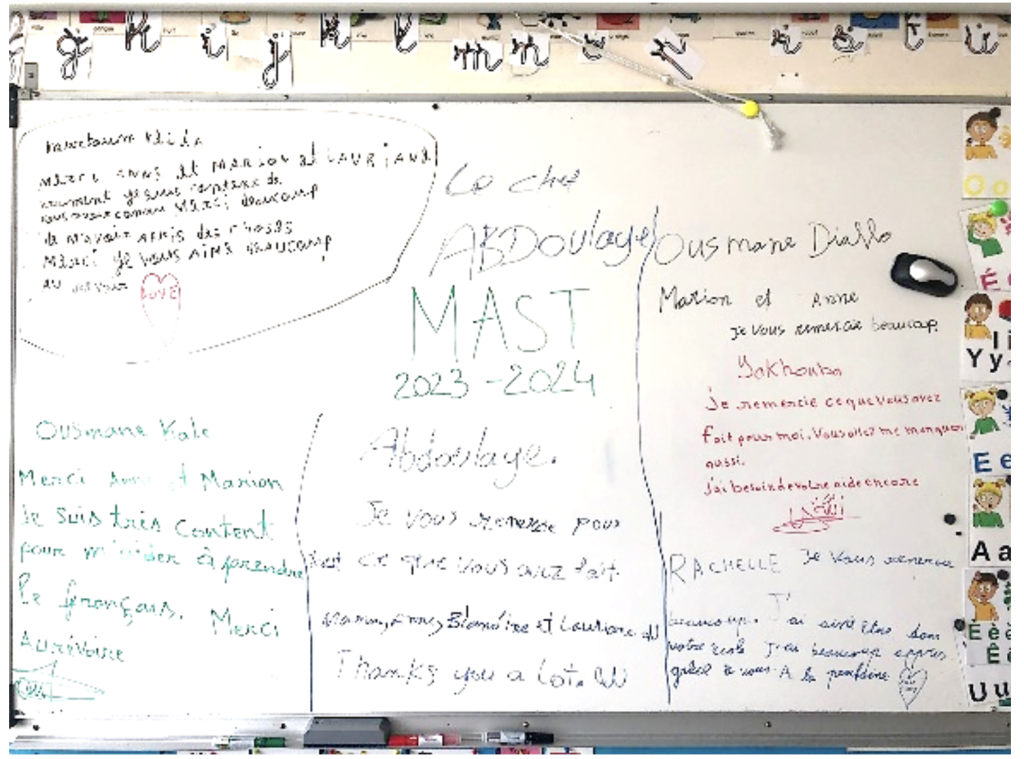 g h i j k l m n o r s t u
MERCI ANNE et MARION et LAURIANE
vraiment je suis
Merci beaucoup
de m'avoir APRIS des choses
MERCI je vous AIME BEAUCOUP
au revoir
LOVE
Le chef
ABDoulaye
MAST
2023 - 2024
Ousmane Diallo
Marion et Anne
je vous remercie beaucoup.
Yakhouba
Je remercie ce que vous avez
fait pour moi. Vous allez me manquer
aussi.
J'ai besoin de votre aide encore
Ousmane Kale
Merci Anne et Marion
Je suis très content
pour m'aider à prendre
le français. Merci
Aurevoire
Abdoulaye.
Je vous remercie pour
tout ce que vous avez fait.
Marion, Anne, et Lauriane
Thanks you a lot.
RACHELLE Je vous remercie
beaucoup. J'ai aimé être dans
votre école J'ai beaucoup appris
grâce à vous A la prochaine
O o
É
I i
Y y
E e
A a
È è
Ê ê
U u